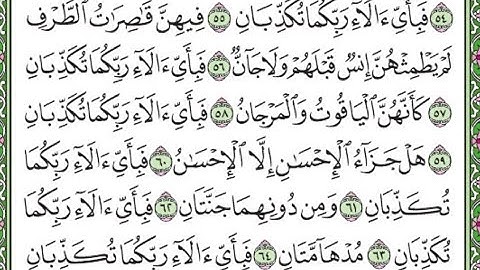 ٥٤ فَبِأَيِّ ءَالَآءِ رَبِّكُمَا تُكَذِّبَانِ ٥٥ فِيهِنَّ قَٰصِرَٰتُ ٱلطَّرْفِ
لَمْ يَطْمِثْهُنَّ إِنسٌ قَبْلَهُمْ وَلَا جَآنٌّ ٥٦ فَبِأَيِّ ءَالَآءِ رَبِّكُمَا تُكَذِّبَانِ
٥٧ كَأَنَّهُنَّ ٱلْيَاقُوتُ وَٱلْمَرْجَانُ ٥٨ فَبِأَيِّ ءَالَآءِ رَبِّكُمَا تُكَذِّبَانِ
٥٩ هَلْ جَزَآءُ ٱلْإِحْسَٰنِ إِلَّا ٱلْإِحْسَٰنُ ٦٠ فَبِأَيِّ ءَالَآءِ رَبِّكُمَا
تُكَذِّبَانِ ٦١ وَمِن دُونِهِمَا جَنَّتَانِ ٦٢ فَبِأَيِّ ءَالَآءِ رَبِّكُمَا
تُكَذِّبَانِ ٦٣ مُدْهَآمَّتَانِ ٦٤ فَبِأَيِّ ءَالَآءِ رَبِّكُمَا تُكَذِّبَانِ